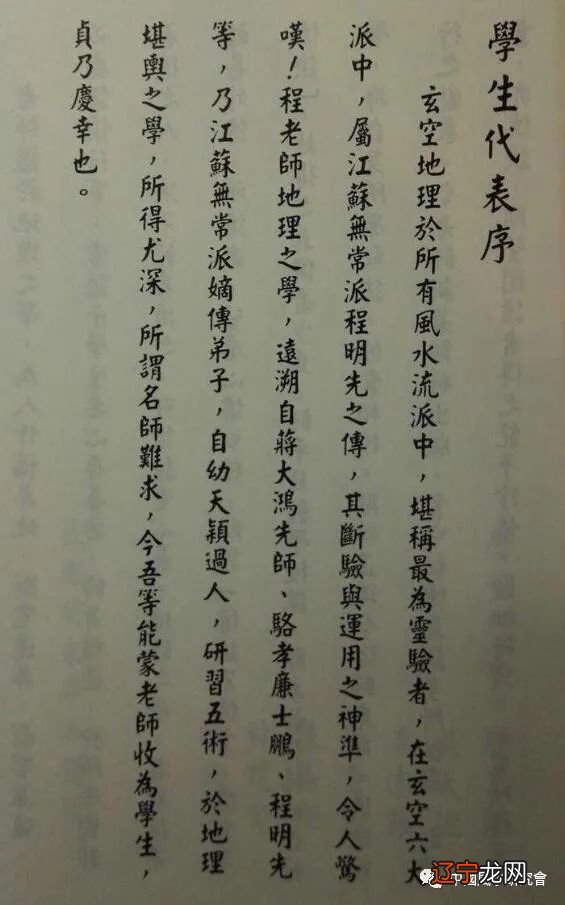 學生代表序
玄空地理於所有風水流派中，堪稱最為靈驗者，在玄空六大
派中，屬江蘇無常派程明先之傳，其斷驗與運用之神準，令人驚
嘆！程老師地理之學，遠溯自蔣大鴻先師、駱孝廉士鵬、程明先
等，乃江蘇無常派嫡傳弟子，自幼天穎過人，研習五術，於地理
堪輿之學，所得尤深，所謂名師難求，今吾等能蒙老師收為學生，
貞乃慶幸也。
辽宁龙网